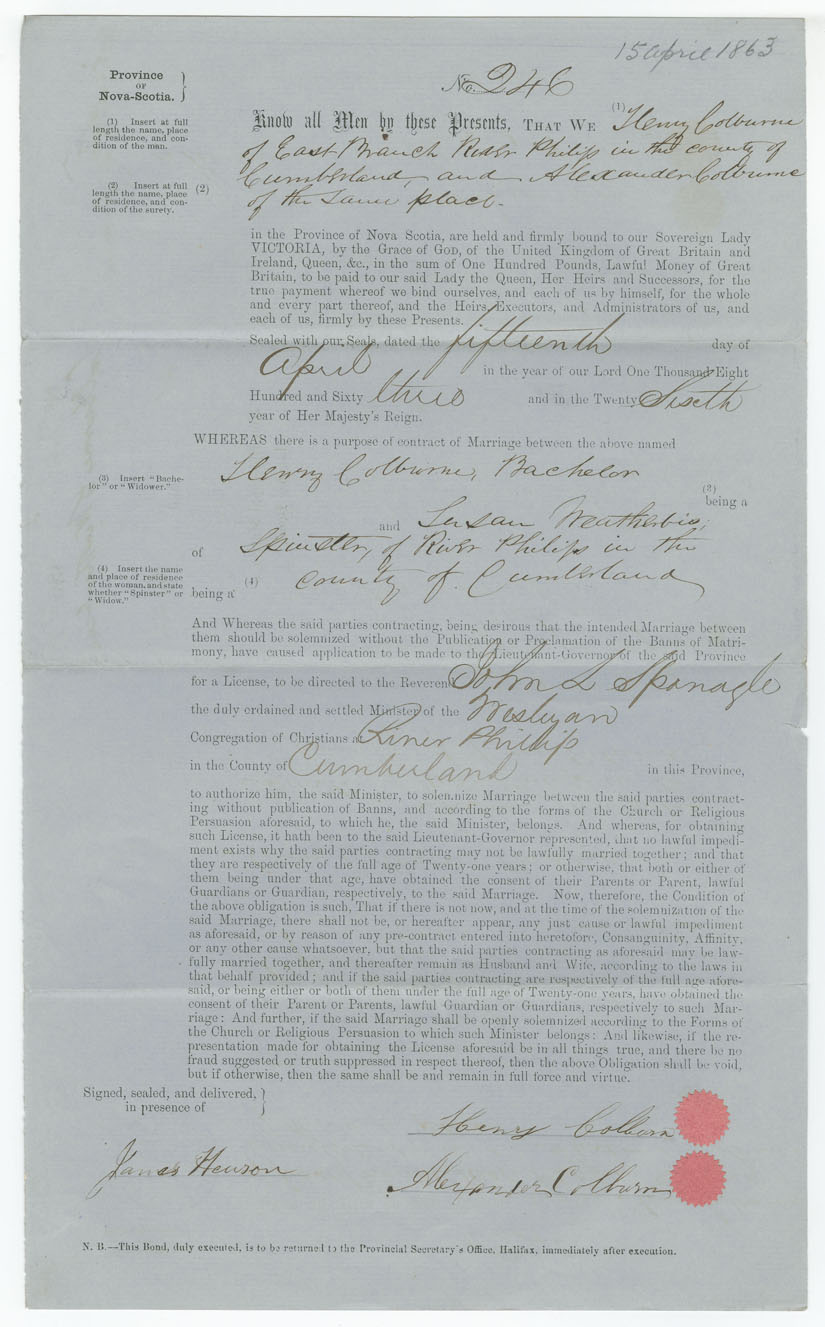 15 april 1863
Province
OF
Nova-Scotia.
No. 246
(1) Insert at full
length the name, place
of residence, and con-
dition of the man.
Know all Men by these Presents, THAT WE (1) Henry Colburne
of East Branch River Philip in the county of
(2) Insert at full
length the name, place
of residence, and con-
dition of the surety.
(2) Cumberland, and Alexander Colburne
of the same place.
in the Province of Nova Scotia, are held and firmly bound to our Sovereign Lady
VICTORIA, by the Grace of GOD, of the United Kingdom of Great Britain and
Ireland, Queen, &c., in the sum of One Hundred Pounds, Lawful Money of Great
Britain, to be paid to our said Lady the Queen, Her Heirs and Successors, for the
true payment whereof we bind ourselves, and each of us by himself, for the whole
and every part thereof, and the Heirs, Executors, and Administrators of us, and
each of us, firmly by these Presents.
Sealed with our Seals, dated the fifteenth day of
April in the year of our Lord One Thousand Eight
Hundred and Sixty three and in the Twenty Sixth
year of Her Majesty's Reign.
WHEREAS there is a purpose of contract of Marriage between the above named
(3) Insert "Bache-
lor" or "Widower."
Henry Colburne, Bachelor
(3)
being a
and Susan Weatherbie,
of Spinster, of River Philip in the
(4) Insert the name
and place of residence
of the woman, and state
whether "Spinster" or
"Widow."
being a (4) county of Cumberland
And Whereas the said parties contracting, being desirous that the intended Marriage between
them should be solemnized without the Publication or Proclamation of the Banns of Matri-
mony, have caused application to be made to the Lieutenant-Governor of the said Province
for a License, to be directed to the Reverend John L Sponagle
the duly ordained and settled Minister of the Wesleyan
Congregation of Christians at River Phillip
in the County of Cumberland in this Province,
to authorize him, the said Minister, to solemnize Marriage between the said parties contract-
ing without publication of Banns, and according to the forms of the Church or Religious
Persuasion aforesaid, to which he, the said Minister, belongs. And whereas, for obtaining
such License, it hath been to the said Lieutenant-Governor represented, that no lawful impedi-
ment exists why the said parties contracting may not be lawfully married together; and that
they are respectively of the full age of Twenty-one years; or otherwise, that both or either of
them being under that age, have obtained the consent of their Parents or Parent, lawful
Guardians or Guardian, respectively, to the said Marriage. Now, therefore, the Condition of
the above obligation is such, That if there is not now, and at the time of the solemnization of the
said Marriage, there shall not be, or hereafter appear, any just cause or lawful impediment
as aforesaid, or by reason of any pre-contract entered into heretofore, Consanguinity, Affinity,
or any other cause whatsoever, but that the said parties contracting as aforesaid may be law-
fully married together, and thereafter remain as Husband and Wife, according to the laws in
that behalf provided; and if the said parties contracting are respectively of the full age afore-
said, or being either or both of them under the full age of Twenty-one years, have obtained the
consent of their Parent or Parents, lawful Guardian or Guardians, respectively to such Mar-
riage: And further, if the said Marriage shall be openly solemnized according to the Forms of
the Church or Religious Persuasion to which such Minister belongs: And likewise, if the re-
presentation made for obtaining the License aforesaid be in all things true, and there be no
fraud suggested or truth suppressed in respect thereof, then the above Obligation shall be void,
but if otherwise, then the same shall be and remain in full force and virtue.
Signed, sealed, and delivered,
in presence of
Henry Colburn
James Hewson
Alexander Colburn
N. B.—This Bond, duly executed, is to be returned to the Provincial Secretary's Office, Halifax, immediately after execution.